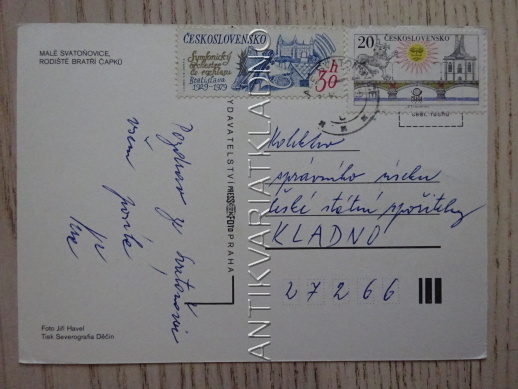 MALÉ SVATOŇOVICE,
RODIŠTĚ BRATŘÍ ČAPKŮ
ČESKOSLOVENSKO
Symfonický
orchestr
čs rozhlasu
Bratislava
1929-1979
30 h
20 h
ČESKOSLOVENSKO
Pozdrav ze Svatoňovic
všem posílá
VYDAVATELSTVÍ PRESSFOTO PRAHA
ANTIKVARIATKLADNO
Kolektiv
správního úseku
české státní spořitelny
KLADNO
27266
Foto Jiří Havel
Tisk Severografia Děčín